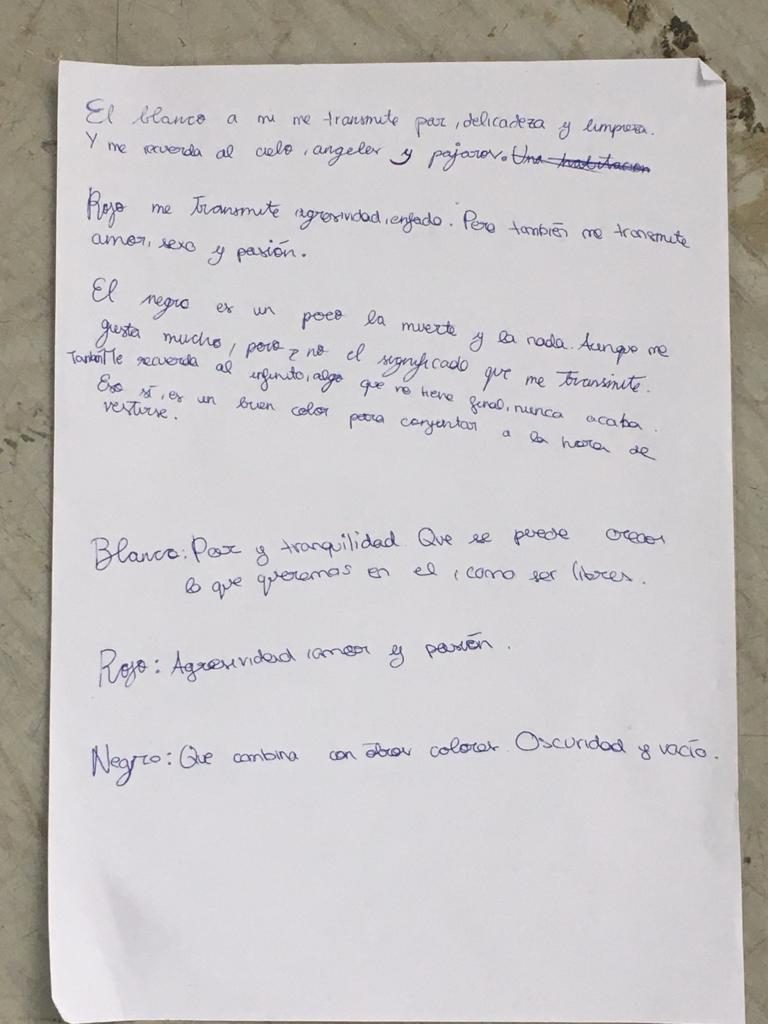 El blanco a mi me transmite paz, delicadeza y limpieza.
Y me recuerda al cielo, angeles y pajaros. Una habitacion
Rojo me transmite agresividad, enfado. Pero también me transmite
amor, sexo y pasión.
El negro es un poco la muerte y la nada. Aunque me
gusta mucho, pero no el significado que me transmite.
Me recuerda al infinito, algo que no tiene final, nunca acaba.
Eso sí, es un buen color para conjuntar a la hora de
vestirse.
Blanco: Paz y tranquilidad. Que se puede crear
lo que queramos en el, como ser libres.
Rojo: Agresividad, amor y pasión.
Negro: Que combina con otros colores. Oscuridad y vacío.